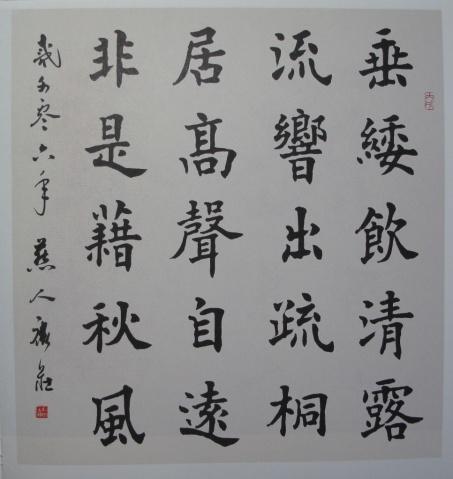 垂緌飲清露
流響出疏桐
居髙聲自遠
非是藉秋風
零六年 燕人